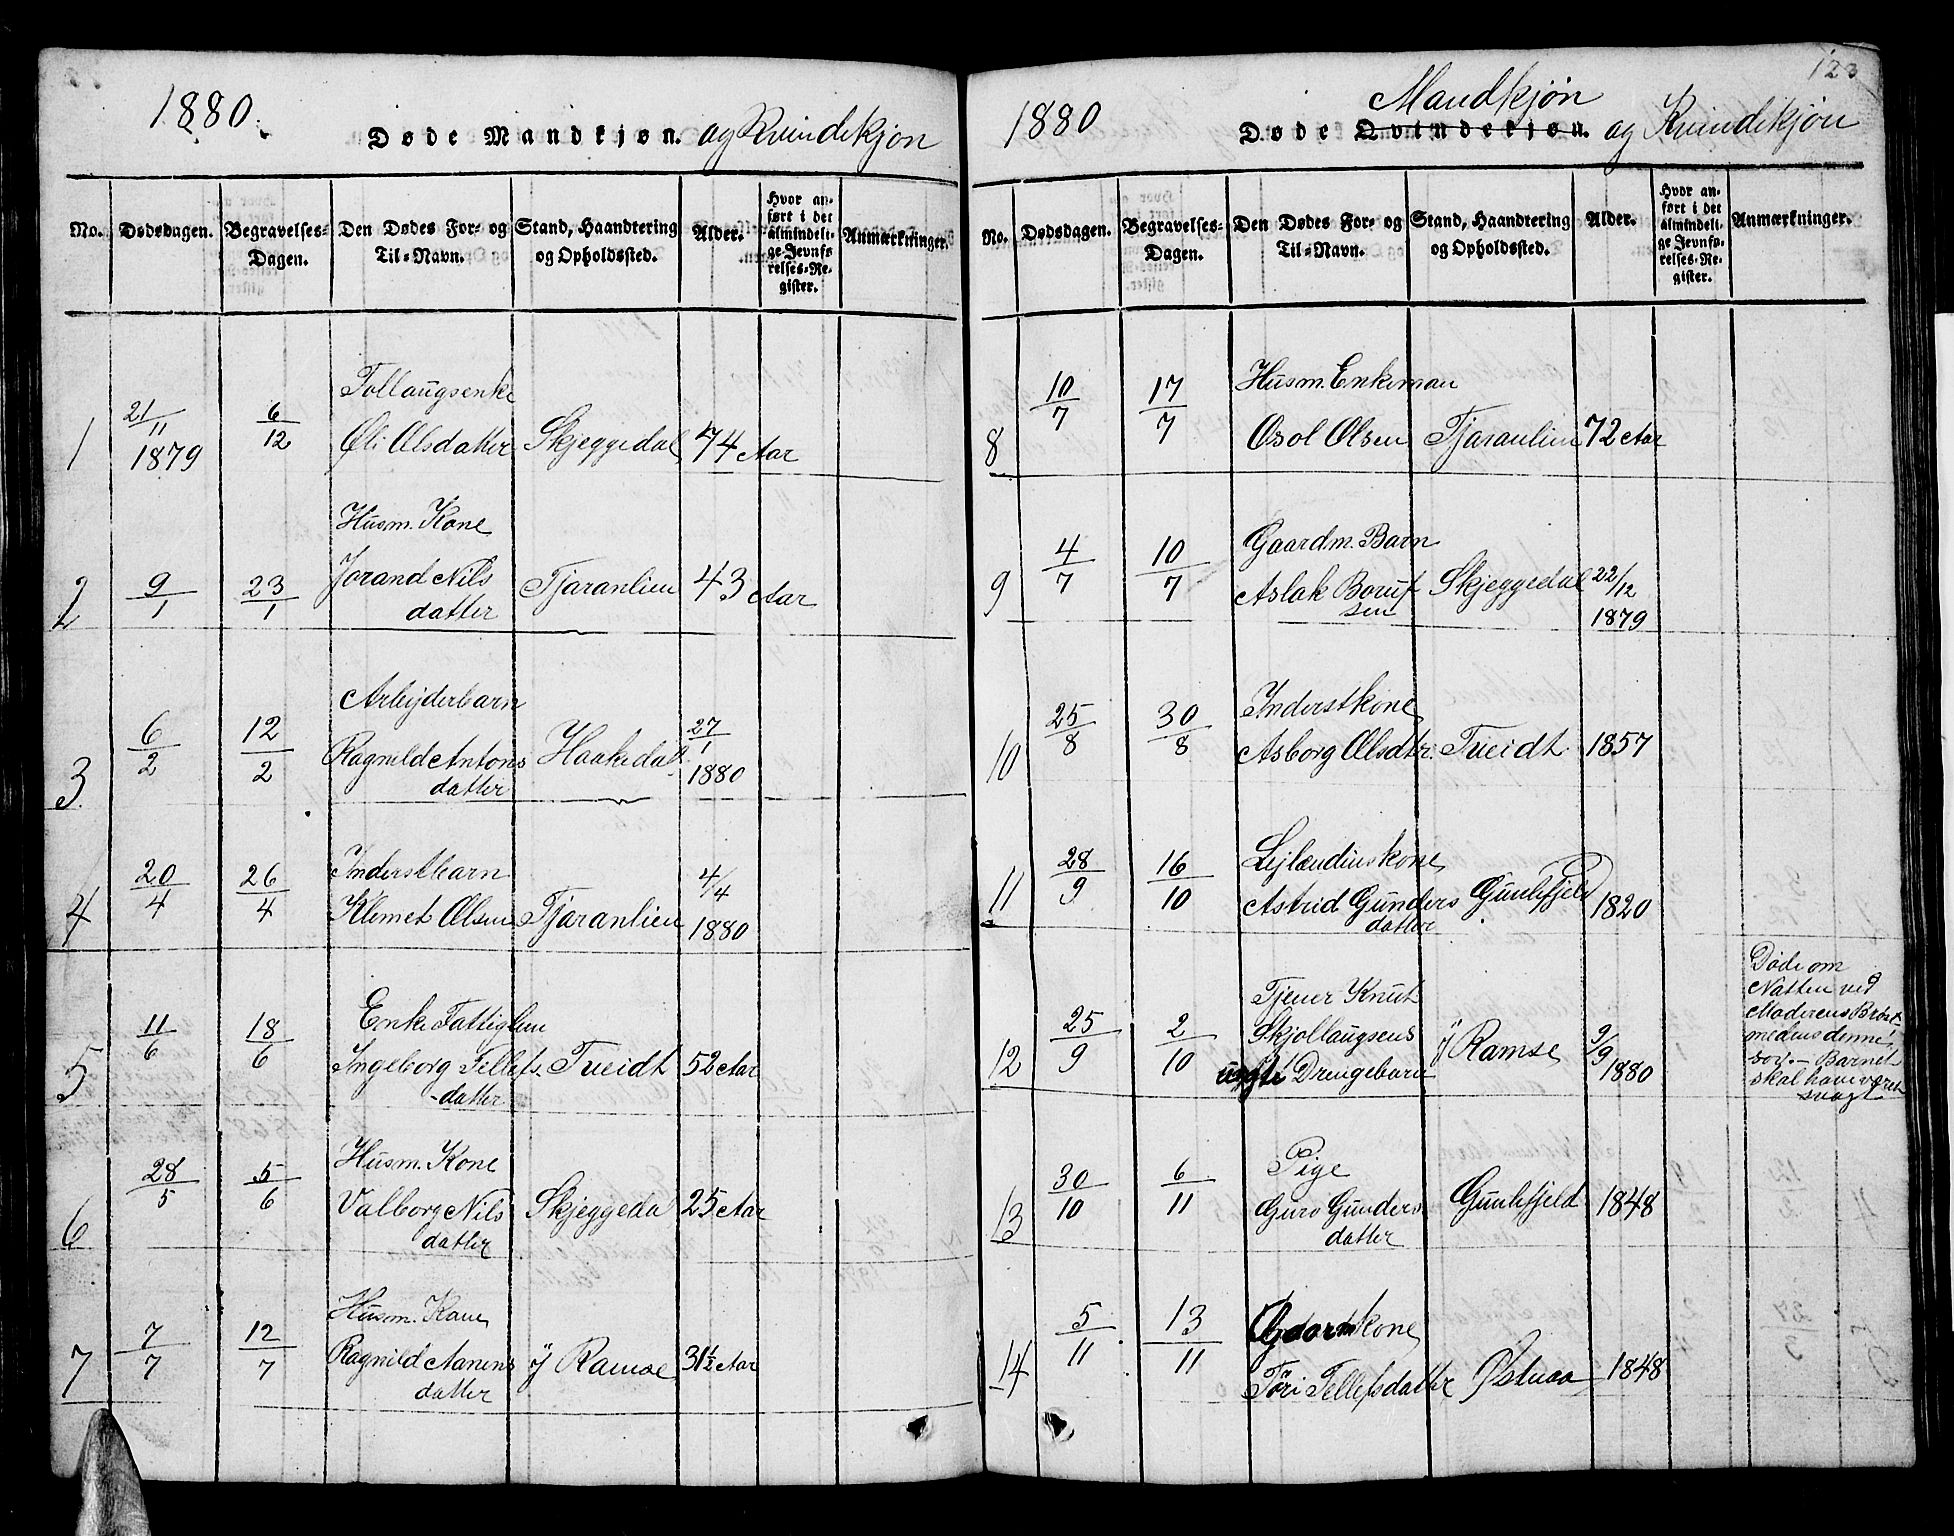 1880.
Døde Mandkjøn. og Kvindekjøn
No.
Dødsdagen.
Begravelses-
Dagen.
Den Dødes For- og
Til-Navn.
Stand, Haandtering
og Opholdssted.
Alder.
Hvor an-
ført i det
almindeli-
ge Jevnfø-
relses-Re-
gister.
Anmærkninger.
1
21/11
1879
6/12
Tollaugsenke
Øli Olsdatter
Skjeggedal
74 Aar
2
9/1
23/1
Husm. Kone
Jorand Nils
datter
Tjaranlien
43 Aar
3
6/2
12/2
Arbejderbarn
Ragnild Antons
datter
Haakedal
27/1
1880
4
20/4
26/4
Inderstbarn
Klemet Olsen
Tjaranlien
4/4
1880
5
11/6
18/6
Enke Fattiglem
Ingeborg Tellefs.
-datter
Tveidt
52 Aar
6
28/5
5/6
Husm. Kone
Valborg Nils
datter
Skjeggeda
25 Aar
7
7/7
12/7
Husm. Kone
Ragnild Aanens
datter
y Ramse
31½ Aar
123
1880
Mandkjøn
Døde Qvindekjøn. og Kvindekjøn
No.
Dødsdagen.
Begravelses-
Dagen.
Den Dødes For- og
Til-Navn.
Stand, Haandtering
og Opholdssted.
Alder.
Hvor an-
ført i det
almindeli-
ge Jevnfø-
relses-Re-
gister.
Anmærkninger.
8
10/7
17/7
Husm. Enkeman
Osol Olsen
Tjaranlien
72 Aar
9
4/7
10/7
Gaardm. Barn
Aslak Boruf
sen
Skjeggedal
22/12
1879
10
25/8
30/8
Inderstkone
Asborg Olsdtr.
Tveidt
1857
11
28/9
16/10
Lejlændinskone
Astrid Gunders
datter
Gunlefjeld
1820
12
25/9
2/10
Tjener Knut
Skjollaugsens
uægte Drengebarn
y Ramse
9/9
1880
Døde om
Natten ved
Moderens Bryst
medens denne
sov. - Barnet
skal have været
svagt
13
30/10
6/11
Pige
Guro Gunders
datter
Gunlefjeld
1848
14
5/11
13/11
Gaardmkone
Tøri Tellefsdatter
Østnaa
1848